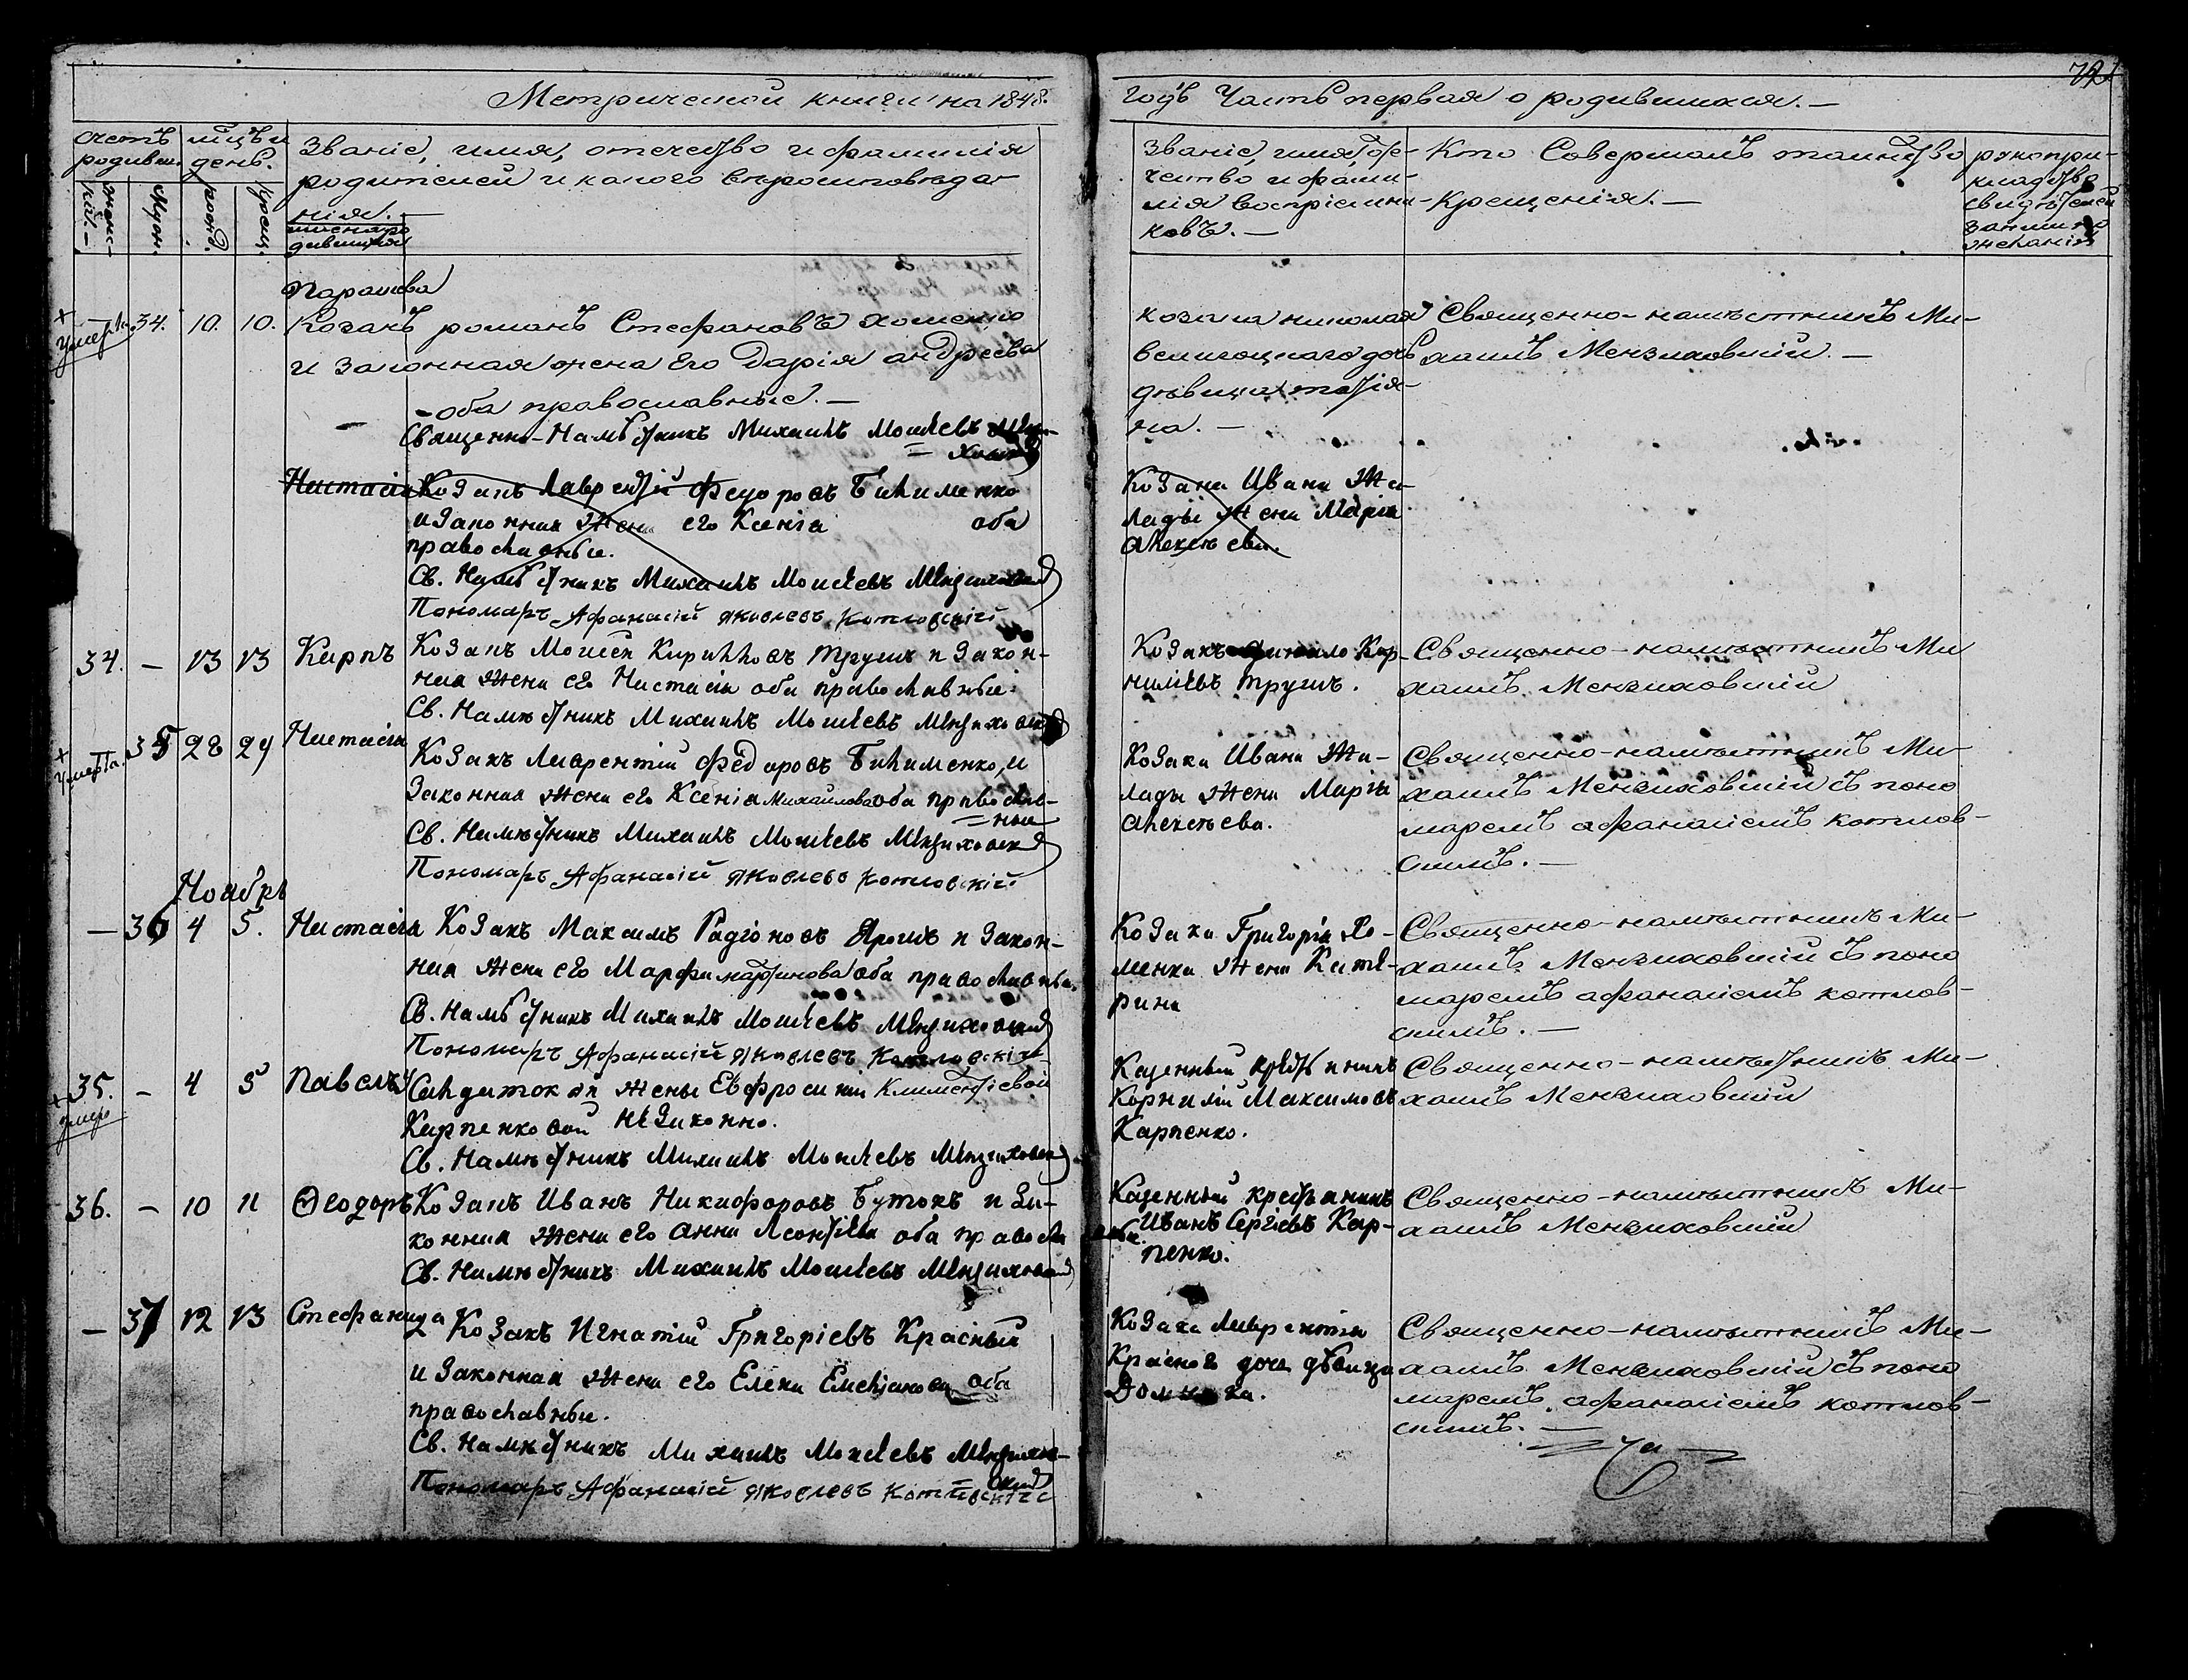 Метрической книги на 1848.
годъ Часть первая о родившихся. —
72
счетъ родивш.
мѣсяцъ и день.
Званіе, имя, отечество и фамилія
родителей и какого вѣроисповѣда-
нія. —
Имена родившихся
Женс-кій. —
Муж.
рожд.
Крещ.
Званіе, имя, оте-
чество и фами-
лія воспріемни-
ковъ. —
Кто Совершалъ таинство
Крещенія. —
рукопри-
кладство
свидѣтелей
записи по
желанію
Параскева
+ умерла
— 34. 10. 10. Козакъ романъ Стефановъ хоменко
и законная жена Его Дарія андреева
- оба православные. —
Священно-Намѣстникъ Михаилъ Моисеевъ
козака николая
великоцкаго дочь
дѣвица татія-
на. —
Священно-намѣстникъ Ми-
хаилъ Мензиховскій. —
Настасія Козакъ Лаврентій Федоровъ Бикименко
и Законная Жена его Ксенія оба
православные.
Св. Намѣстникъ Михаилъ Моисеевъ Мензиховскій
Пономарь Афанасій Яковлевъ Котловскій
Козака Ивана Жа-
лады жена Марія
Алексѣева.
34. — 13 13 Карпъ Козакъ Моисей Кирилловъ Трушъ и Закон-
ная Жена его Настасія оба православные.
Св. Намѣстникъ Михаилъ Моисеевъ Мензиховскій
Козакъ Кор-
нилиевъ Трушъ.
Священно-намѣстникъ Ми
хаилъ Мензиховскій
+ умерла.
35 28 29 Настасія Козакъ Лаврентій Федоровъ Бикименко, и
Законная Жена его Ксенія Михайлова оба православ-
ные
Св. Намѣстникъ Михаилъ Моисеевъ Мензиховскій
Пономарь Афанасій Яковлевъ Котловскій
Козака Ивана Жа-
лады Жена Марія
Алексѣева.
Священно-намѣстникъ Ми-
хаилъ Мензиховскій съ поно
маремъ афанасіемъ котлов-
скимъ. —
Ноябрь
— 36 4 5. Настасія Козакъ Максимъ Радіоновъ Ярошъ и Закон-
ная Жена его Марфа мартинова оба православные.
Св. Намѣстникъ Михаилъ Моисеевъ Мензиховскій
Пономарь Афанасій Яковлевъ Котловскій
Козака Григорія Хо-
менка Жена Кате-
рина
Священно-намѣстникъ Ми-
хаилъ Мензиховскій съ поно
маремъ афанасіемъ котлов-
скимъ. —
+ умер
35. — 4 5 Павелъ Солдатской жены Евфросиніи Климентіевой
Карпенковой незаконно.
Св. Намѣстникъ Михаилъ Моисеевъ Мензиховскій
Казенный крестьянинъ
Корнилій Максимовъ
Карпенко.
Священно-намѣстникъ Ми-
хаилъ Мензиховскій
36. — 10 11 Ѳеодоръ Козакъ Иванъ Никифоровъ Бутокъ и За-
конная Жена его Анна Леонтіева оба правосла
вные.
Св. Намѣстникъ Михаилъ Моисеевъ Мензиховскій
Казенный крестьянинъ
Иванъ Сергіевъ Кар-
пенко.
Священно-намѣстникъ Ми-
хаилъ Мензиховскій
— 37 12 13 Стефанида Козакъ Игнатій Григоріевъ Красный
и Законная Жена его Елена Емеліанова оба
православные.
Св. Намѣстникъ Михаилъ Моисеевъ Мензихов-
скій
Пономарь Афанасій Яковлевъ Котловскій
Козака Лаврентія
Красного дочь дѣвица
Домника.
Священно-намѣстникъ Ми-
хаилъ Мензиховскій съ поно
маремъ афанасіемъ котлов-
скимъ. —